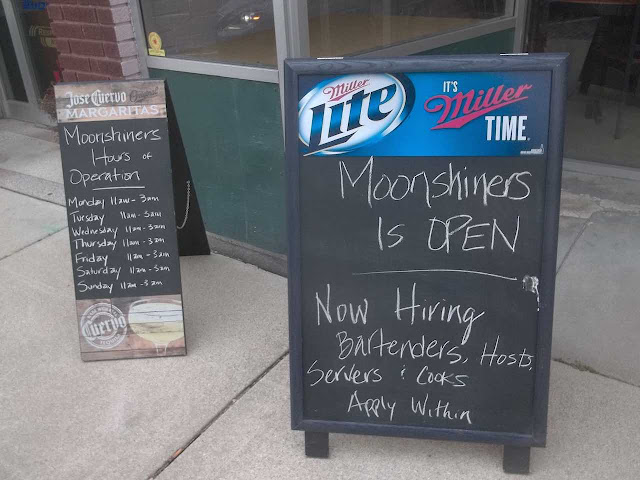 Jose Cuervo
MARGARITAS
Moonshiners
Hours of
Operation
Monday 11am - 3am
Tuesday 11am - 3am
Wednesday 11am - 3am
Thursday 11am - 3am
Friday 11am - 3am
Saturday 11am - 3am
Sunday 11am - 3am
Cuervo
Miller
Lite
IT'S
Miller
TIME.
Moonshiners
IS OPEN
Now Hiring
Bartenders, Hosts,
Servers & Cooks
Apply Within